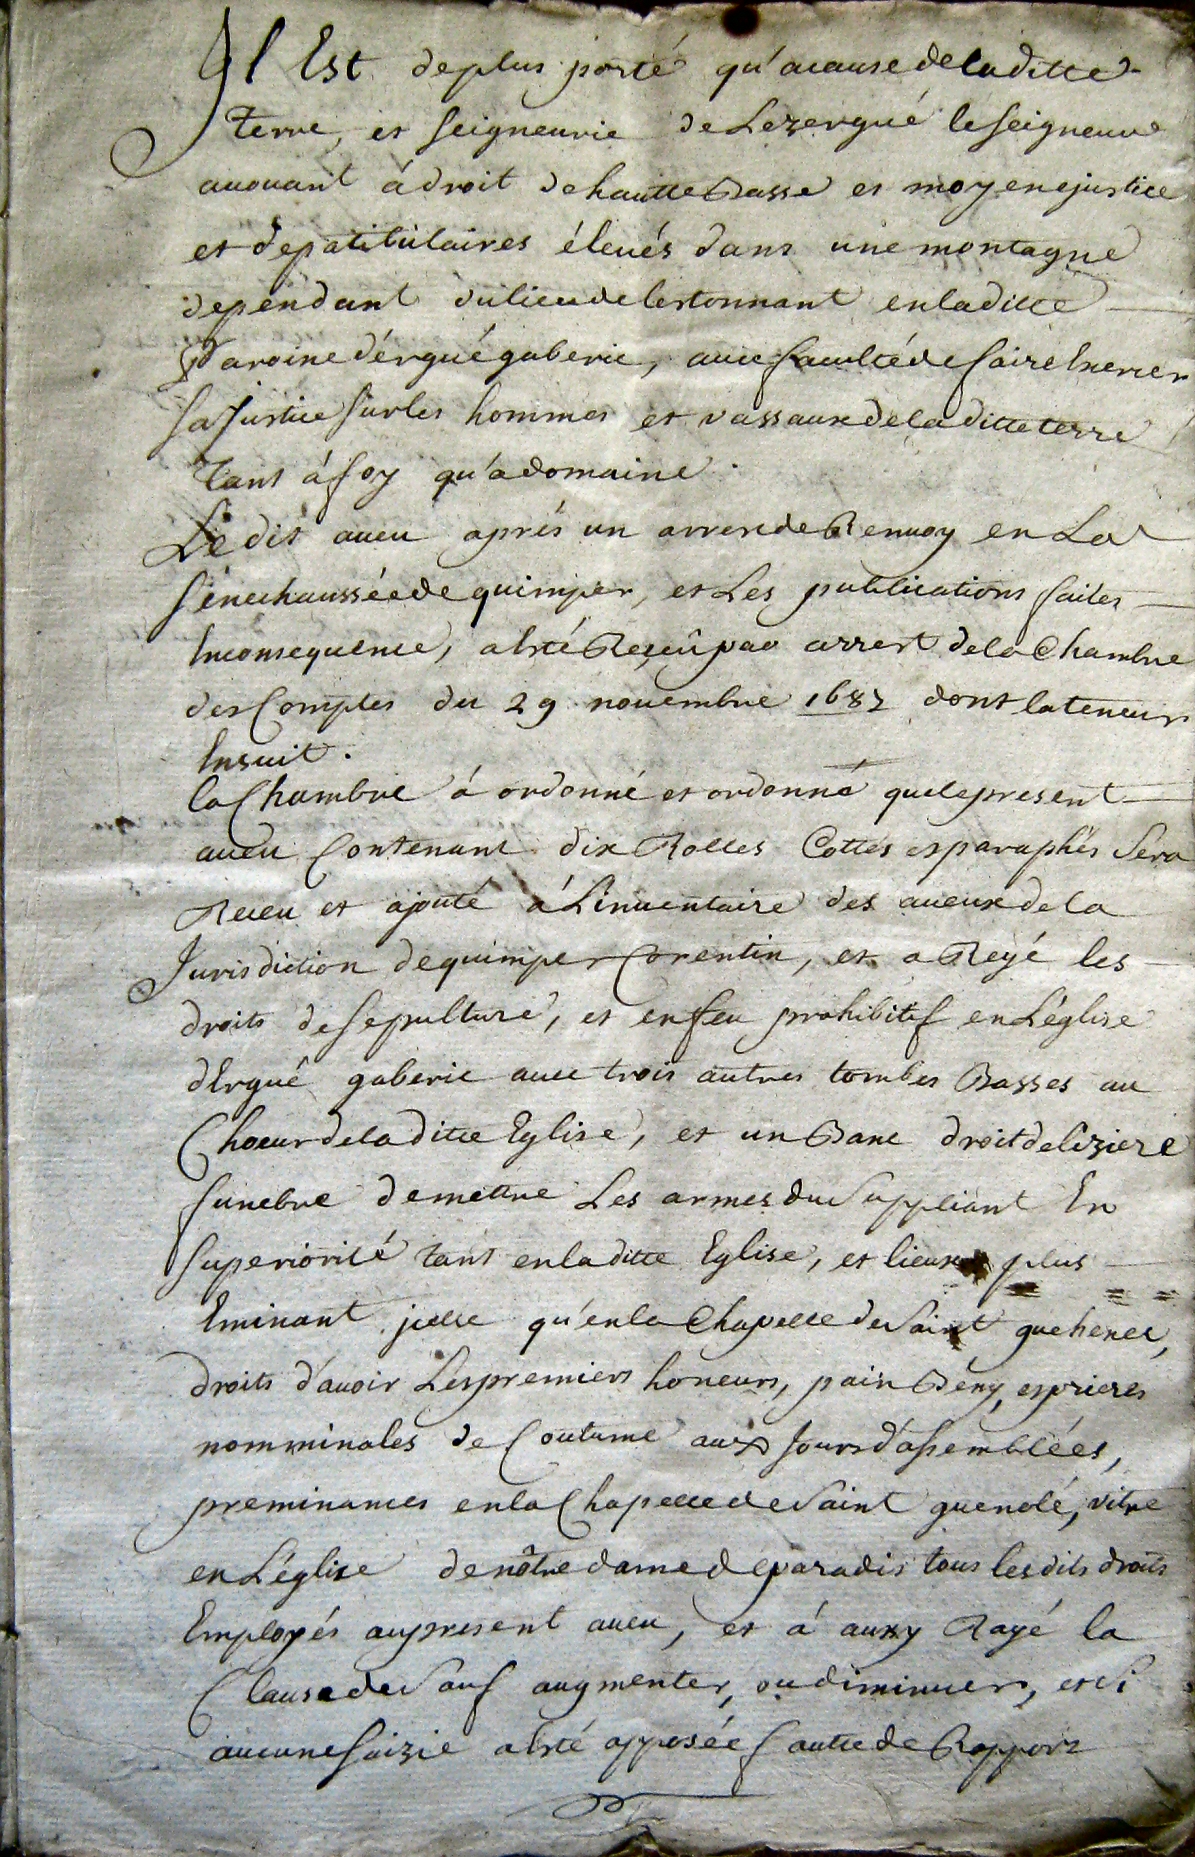 Il Est deplus porté qu'acause de la ditte
terre, et seigneurie de Lezergué le seigneur
avouant á droit de hautte Basse et moyene justice
et de patibulaires élevés dans une montagne
dependant du lieu de lestonnant en la ditte
Paroine d'érgué gaberic, avec faculté de faire Exercer
sa Justice sur les hommes et vassaux de la ditte terre
tant á foy qu'a domaine.
Le dit aveu aprés un arrest de Renvoy en La
sénechaussée de quimper, et Les publications faites
Inconsequence, a Eté Reçeû par arrest de la Chambre
des Comptes du 29 novembre 1682 dont la teneur
Ensuit.
la Chambre á ordonné et ordonne que le present
aveu Contenant dix Rolles Cottés et paraphés Sera
Receu et ajouté á L'inventaire des aveux de la
Jurisdiction de quimper Corentin, et a Reyé les
droits de sepulture, et enfeu prohibitif en L'église
d'Ergué gaberic avec trois autres tombes Basses au
Choeur de la ditte Eglise, et un Banc droit de liziere
funebre de mettre Les armes du Suppliant En
superiorité tant en la ditte Eglise, et lieux plus
Eminant jcelle qu'en la Chapelle de Saint guehenec,
droits d'avoir Les premiers honeurs, pain Bény, et prieres
nomminales de Coutume aux Jours d'assemblées,
preminances en la Chapelle de Saint guenolé, vitre
en L'église de nôtre dame de paradis tous les dits droits
Employés au present aveu, et á auxy Rayé la
Clause de Sauf augmenter, ou diminuer, et Si
aucune saizie a Eté apposée fautte de Rapport